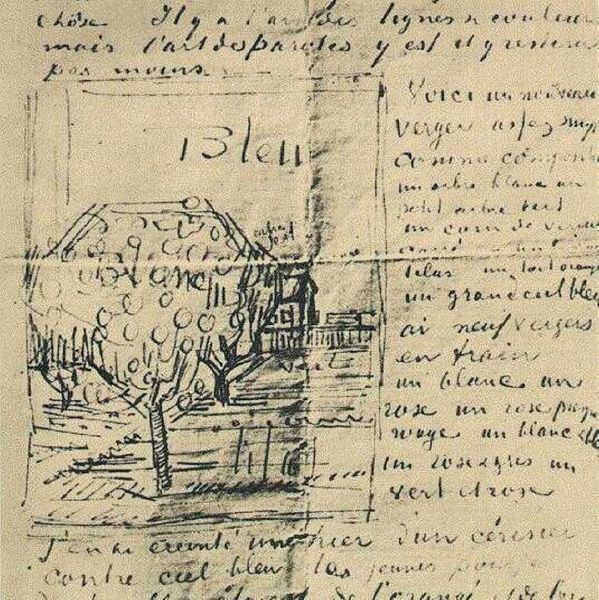 chose. Il y a l'art des lignes et couleurs
mais l'art des paroles y est et y restera
pas moins.
Bleu
Voici un nouveau
verger assez simple
comme composition
un arbre blanc un
petit arbre vert
un carré de verdure
lilas un toit orangé
un grand ciel bleu
ai neuf vergers
en train
un blanc un
rose un rose presque
rouge un blanc et
un rose gris un
vert et rose
blanc
vert
lilas
J'en ai éreinté un hier d'un cérisier
contre ciel bleu les jeunes pousses
de l'orangé et de l'or